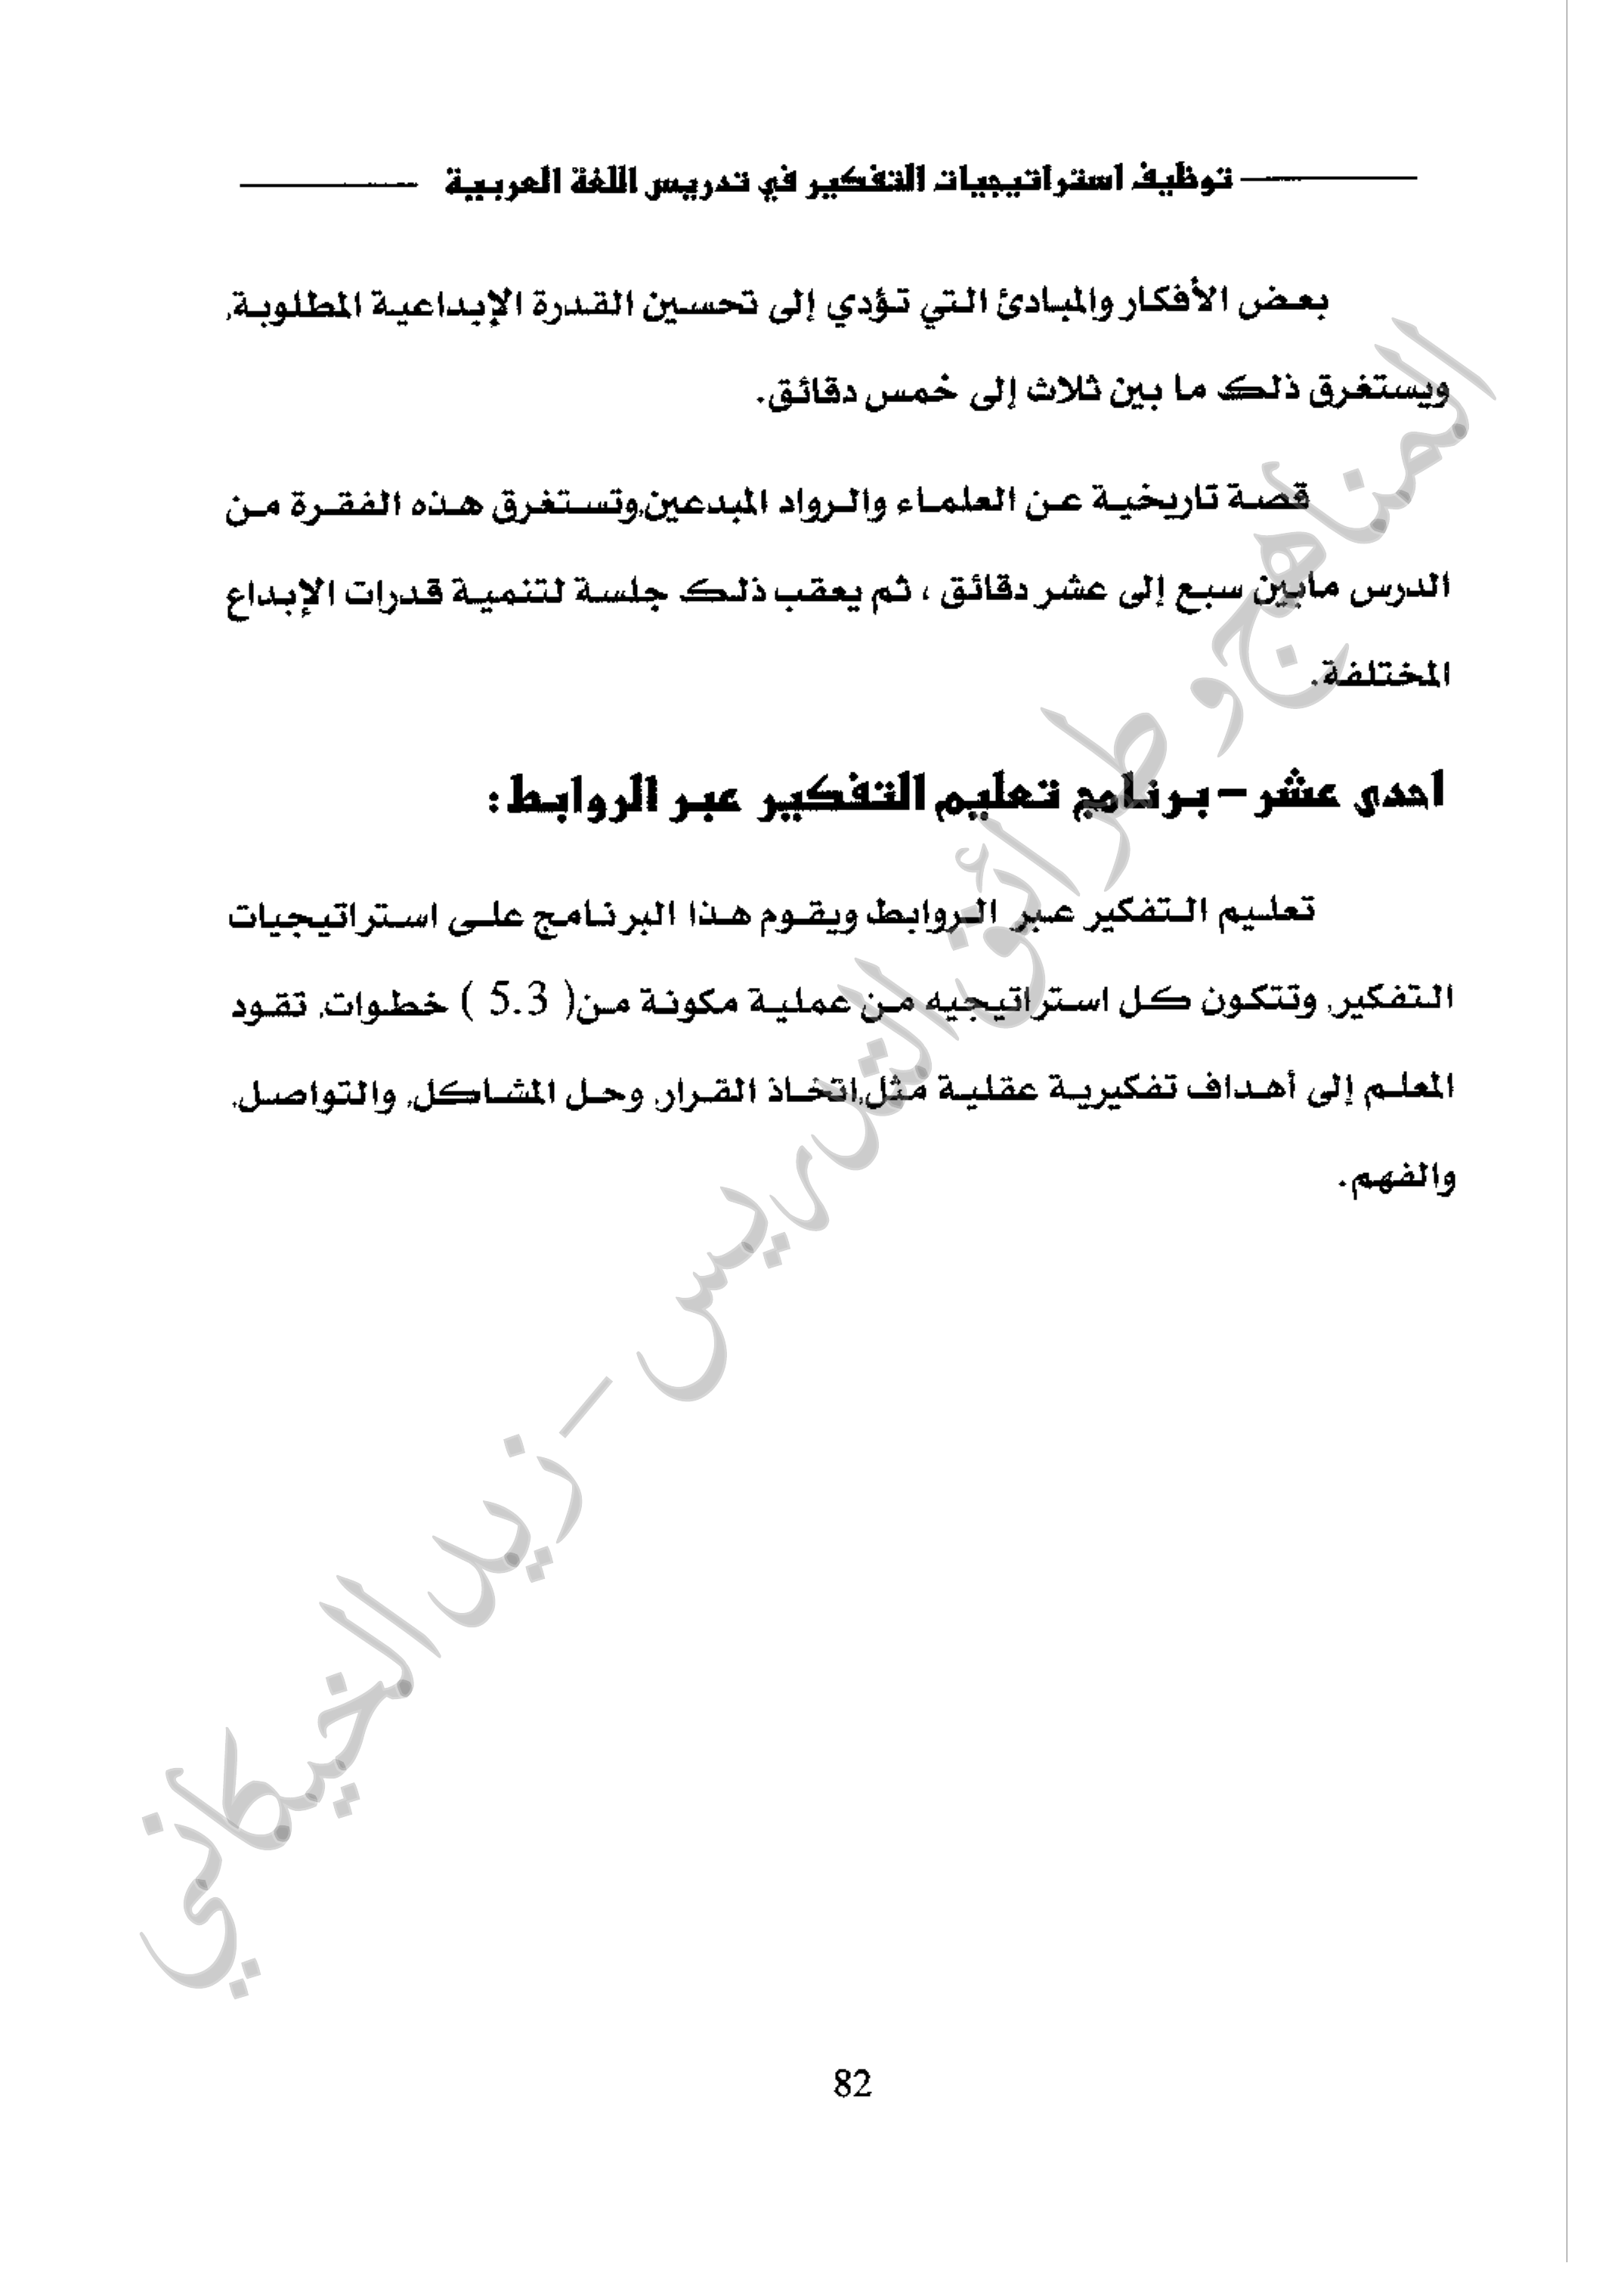 توظيف استراتيجيات التفكير في تدريس اللغة العربية
بعض الأفكار والمبادئ التي تؤدي إلى تحسين القدرة الإبداعية المطلوبة,
ويستغرق ذلك ما بين ثلاث إلى خمس دقائق.
قصة تاريخية عن العلماء والرواد المبدعين,وتستغرق هذه الفقرة من
الدرس مابين سبع إلى عشر دقائق ، ثم يعقب ذلك جلسة لتنمية قدرات الإبداع
المختلفة.
احدى عشر – برنامج تعليم التفكير عبر الروابط:
تعليم التفكير عبر الروابط ويقوم هذا البرنامج على استراتيجيات
التفكير, وتتكون كل استراتيجيه من عملية مكونة من( 5.3 ) خطوات, تقود
المعلم إلى أهداف تفكيرية عقلية مثل,اتخاذ القرار, وحل المشاكل, والتواصل,
والفهم.
المناهج وطرائق التدريس - زيد الخيكاني
82